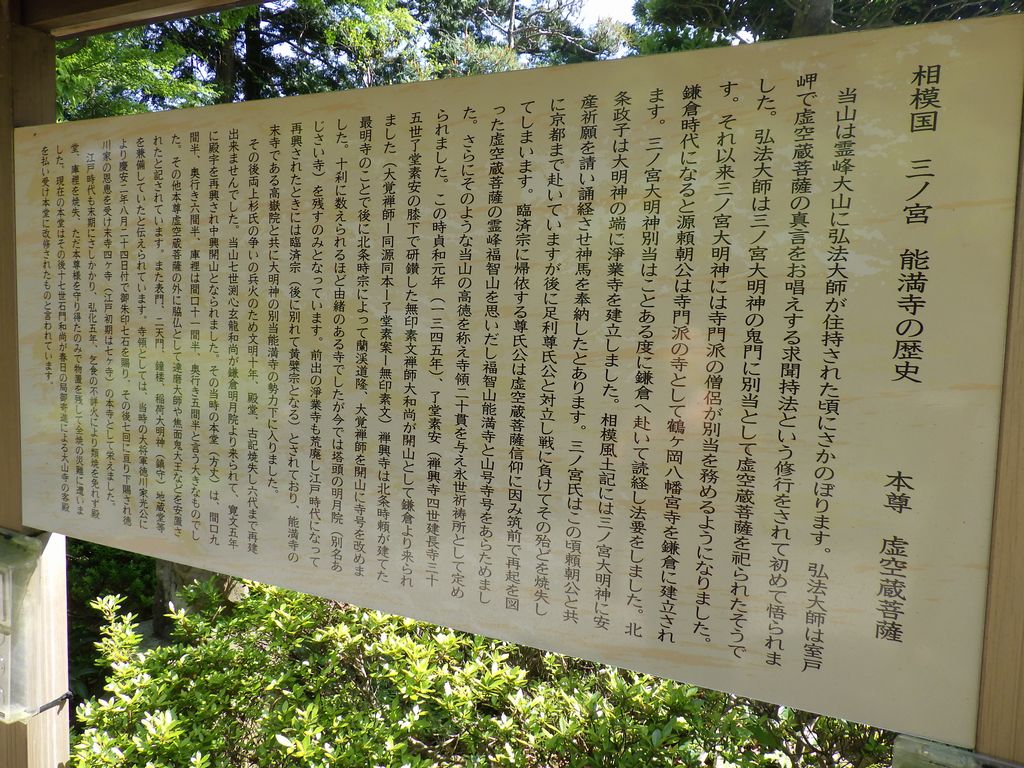 相模国　三ノ宮　能満寺の歴史
本尊　虚空蔵菩薩
当山は霊峰大山に弘法大師が住持された頃にさかのぼります。弘法大師は室戸
岬で虚空蔵菩薩の真言をお唱えする求聞持法という修行をされて初めて悟られま
した。弘法大師は三ノ宮大明神の鬼門に別当として虚空蔵菩薩を祀られたそうで
す。それ以来三ノ宮大明神には寺門派の僧侶が別当を務めるようになりました。
鎌倉時代になると源頼朝公は寺門派の寺として鶴ヶ岡八幡宮寺を鎌倉に建立され
ます。三ノ宮大明神別当はことある度に鎌倉へ赴いて読経し法要をしました。北
条政子は大明神の端に浄業寺を建立しました。相模風土記には三ノ宮大明神に安
産祈願を請い誦経させ神馬を奉納したとあります。三ノ宮氏はこの頃頼朝公と共
に京都まで赴いていますが後に足利尊氏公と対立し戦に負けてその殆どを焼失し
てしまいます。臨済宗に帰依する尊氏公は虚空蔵菩薩信仰に因み筑前で再起を図
った虚空蔵菩薩の霊峰福智山を思いだし福智山能満寺と山号寺号をあらためまし
た。さらにそのような当山の高徳を称え寺領二十貫を与え永世祈祷所として定め
られました。この時貞和元年（一三四五年）、了堂素安（禅興寺四世建長寺三十
五世了堂素安の膝下で研鑽した無印素文禅師大和尚が開山として鎌倉より来られ
ました（大覚禅師ー同源同本ー了堂素案ー無印素文）禅興寺は北条時頼が建てた
最明寺のことで後に北条時宗によって蘭渓道隆、大覚禅師を開山に寺号を改めま
した。十利に数えられるほど由緒のある寺でしたが今では塔頭の明月院（別名あ
じさい寺）を残すのみとなっています。前出の浄業寺も荒廃し江戸時代になって
再興されたときには臨済宗（後に別れて黄檗宗となる）とされており、能満寺の
末寺である高嶽院と共に大明神の別当能満寺の勢力下に入りました。
その後両上杉氏の争いの兵火のため文明十年、殿堂、古記焼失し六代まで再建
出来ませんでした。当山七世渕心玄龍和尚が鎌倉明月院より来られて、寛文五年
に殿宇を再興され中興開山となられました。その当時の本堂（方丈）は、間口九
間半、奥行き六間半、庫裡は間口十一間半、奥行き五間半と言う大きなものでし
た。その他本尊虚空蔵菩薩の外に脇仏として達磨大師や焦面鬼大王などを安置さ
れたと記されています。また表門、二天門、鐘楼、稲荷大明神（鎮守）地蔵堂等
を兼備していたと伝えられています。寺領としては、当時の大将軍徳川家光公に
より慶安二年八月二十四日付で御朱印七石を賜り、その後七回に亘り下賜され徳
川家の恩恵を受け末寺四ヶ寺（江戸初期は七ヶ寺）の本寺として栄えました。
江戸時代も末期にさしかかり、弘化五年、乞食の不審火により類焼を免れず殿
堂、庫裡を焼失、ただ本尊様を守り得たのみで物置を残して全焼の災難に遭いま
した。現在の本堂はその後十七世石門和尚が春日の局御寄進による大山寺の客殿
を払い受け本堂に改修されたものと言われています。